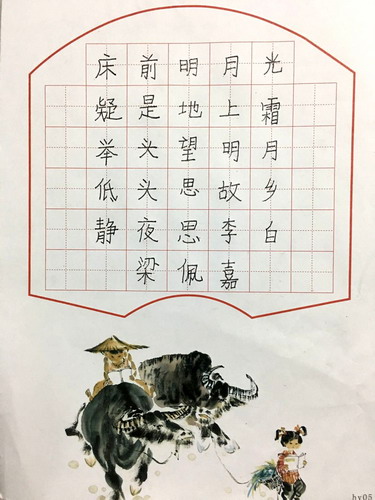 床前明月光
疑是地上霜
举头望明月
低头思故乡
静夜思李白
梁佩嘉
by05